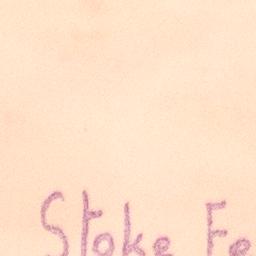 Stoke Fe